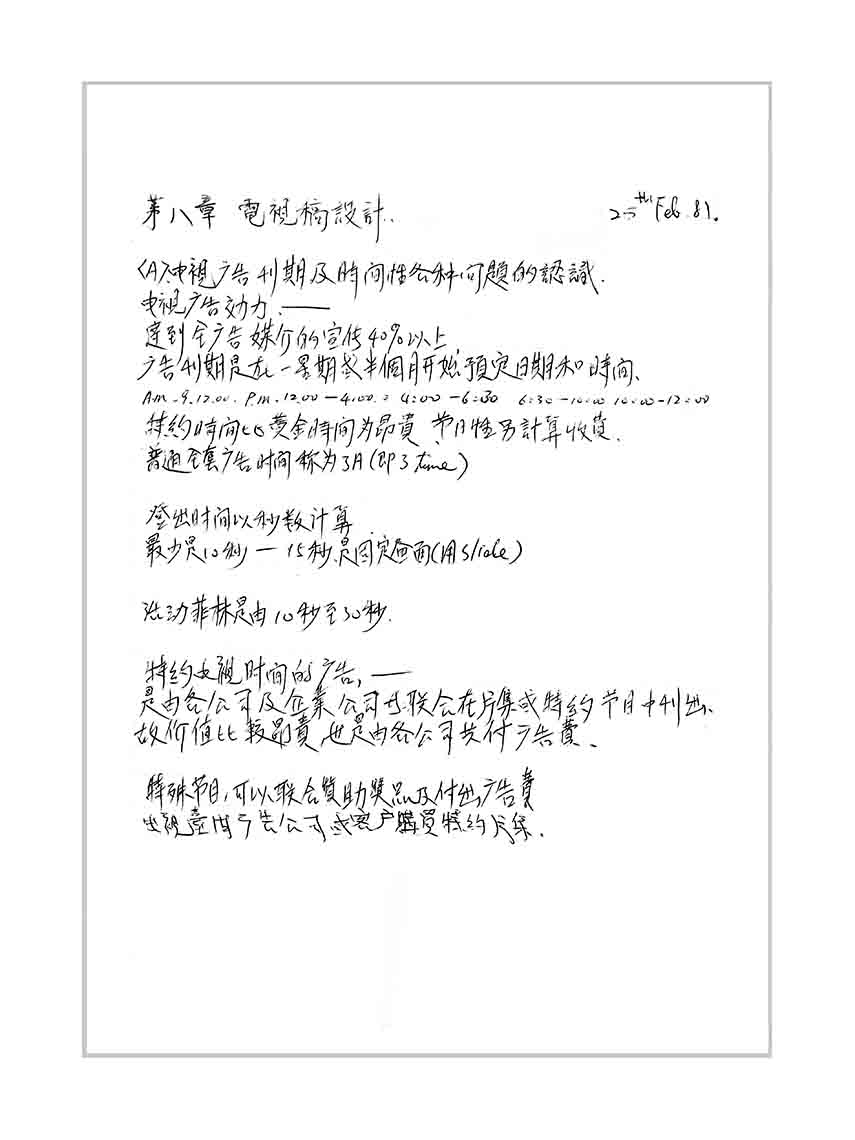 第八章 電視稿設計. 25th Feb. 81.
<A>电視广告刊期及時间性各种问題的認識.
电視广告効力.——
達到全广告媒介的宣传40%以上.
广告刊期是在一星期或半個月开始預定日期和時间、
A.m. 9.12.00. P.m. 12.00—4:00. 4:00—6:30 6:30—10:00 10:00—12:00
特約時间比黄金時间为昂貴、节日性另計算收費.
普通全套广告时间称为3A(即3 time)
登出时间以秒数计算.
最少是10秒—15秒是固定画面(用slide)
活动菲林是由10秒至30秒.
特約电視时间的广告,——
是由各公司及企業公司联会在片集或特約节目中刊出、
故价值比較昂貴,也是由各公司共付广告費、
特殊节目,可以联合贊助獎品及付出广告費
电視臺由广告公司或客户購買特約片集.